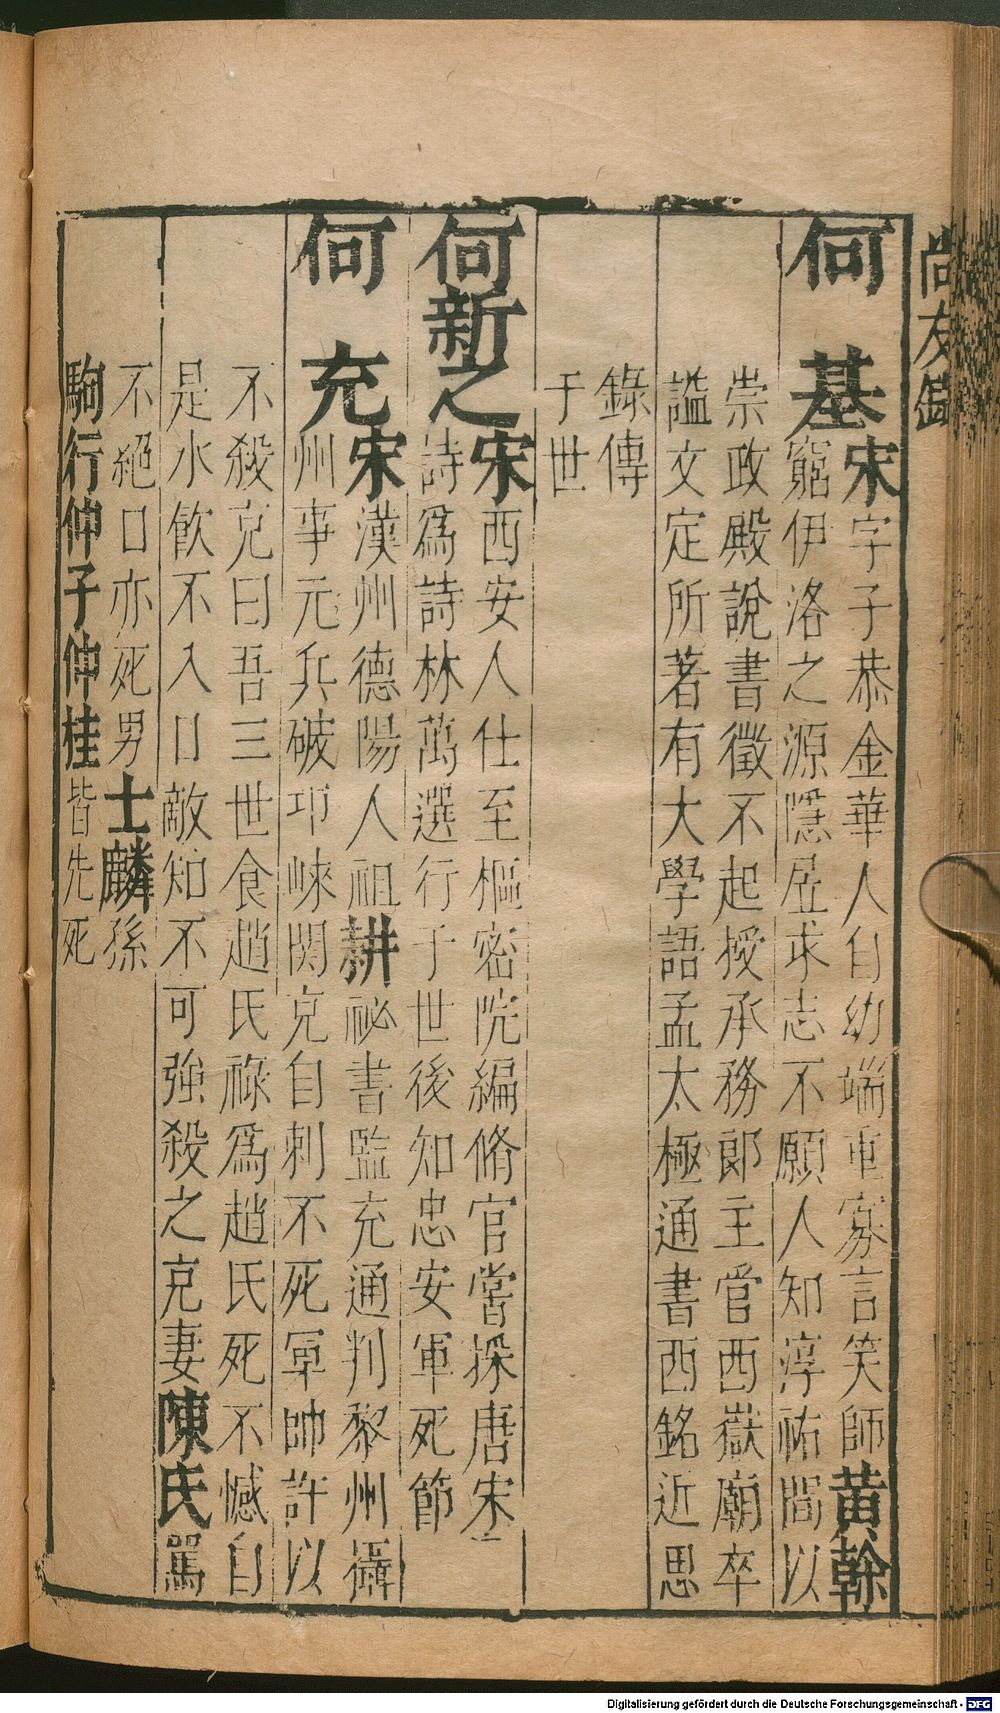 尚友錄
何 基宋字子恭金華人自幼端重寡言笑師黃幹
窮伊洛之源隱居求志不願人知淳祐間以
崇政殿說書徵不起授承務郎主官西嶽廟卒
謚文定所著有大學語孟太極通書西銘近思
錄傳
于世
何新之宋西安人仕至樞密院編脩官嘗採唐宋
詩爲詩林萬選行于世後知忠安軍死節
何 充宋漢州德陽人祖耕祕書監充通判黎州攝
州事元兵破邛崍関克自刺不死軍帥許以
不殺克曰吾三世食趙氏祿爲趙氏死不憾自
是水飲不入口敵知不可強殺之克妻陳氏罵
不絕口亦死男士麟孫
駒行仲子仲桂皆先死
Digitalisierung gefördert durch die Deutsche Forschungsgemeinschaft - DFG